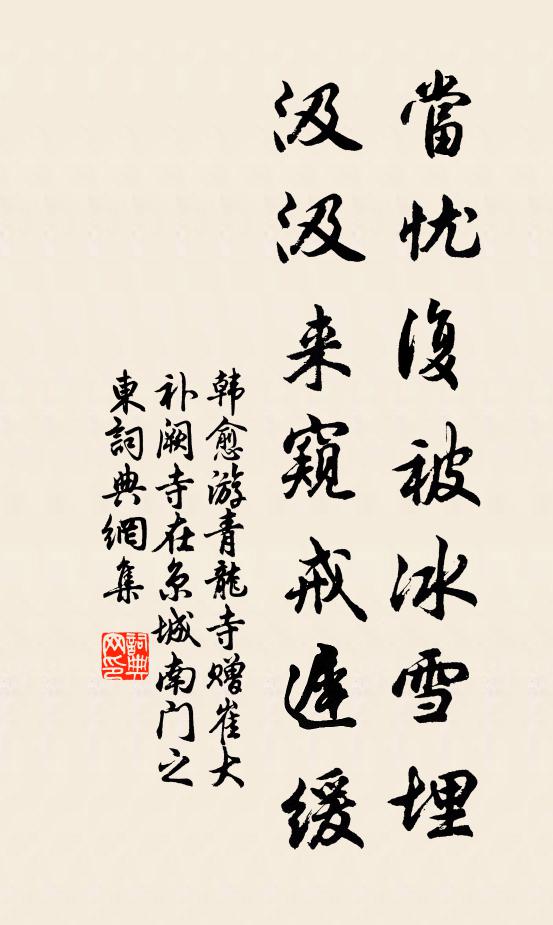 當忧復被冰雪埋
汲汲来窺戒遲緩
韩愈游青龍寺赠崔大
补阙寺在京城南门之
東詞典網集
詞典网印